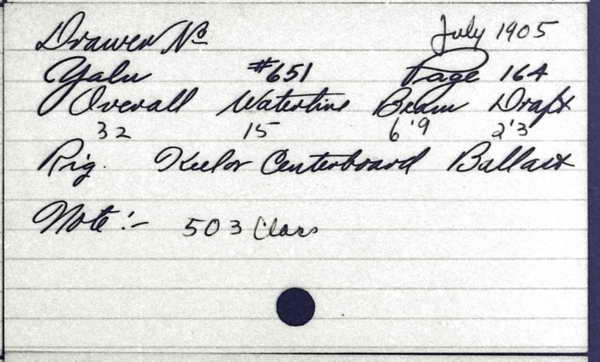 Drawer No July 1905
Yalu #651 Page 164
Overall Waterline Beam Draft
32 15 6'9 2'3
Rig. Keel or Centerboard Ballast
Note:- 503 Class